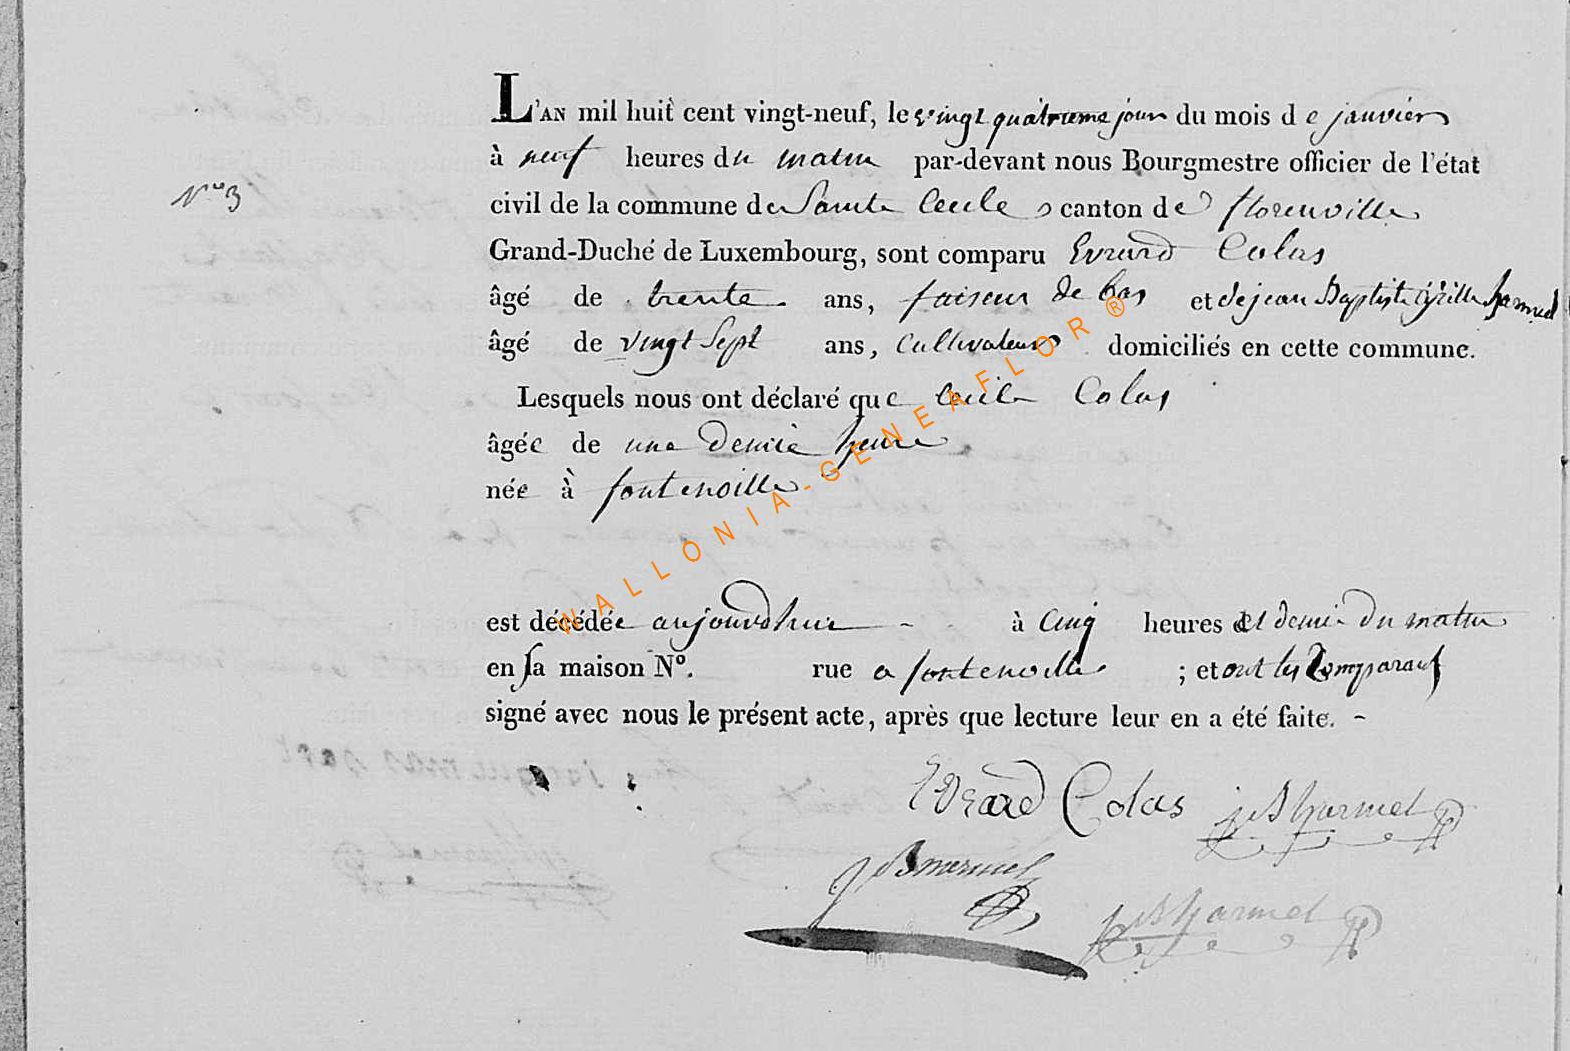 L'AN mil huit cent vingt-neuf, le vingt quatrieme jour du mois de janvier
à neuf heures du matin par-devant nous Bourgmestre officier de l'état
N.o 3
civil de la commune de Sainte Cecile canton de florenville
Grand-Duché de Luxembourg, sont comparu Evrard Colas
âgé de trente ans, faiseur de bas et de jean Baptiste Cyrille harmel
âgé de vingt Sept ans, Cultivateur domiciliés en cette commune.
Lesquels nous ont déclaré que Cecile Colas
âgée de une demie heure
née à fontenoille
est décédée aujourdhui à Cinq heures et demie du matin
en sa maison N°. rue a fontenoille ; et ont les Comparants
signé avec nous le présent acte, après que lecture leur en a été faite.
Evrard Colas jB harmel
jB harmel
WALLONIA-GENEAFLOR®